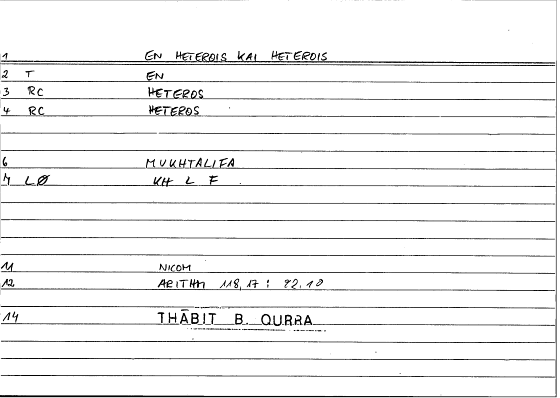 1 EN HETEROIS KAI HETEROIS
2 T EN
3 RC HETEROS
4 RC HETEROS
6 MUKHTALIFA
LØ KH L F
11 NICOM
12 ARITHM 118,17 :
14 THĀBIT B. QURRA